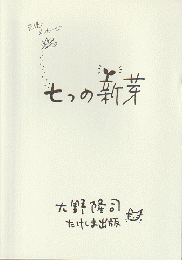 七つの新芽
大野隆司
たけしま出版